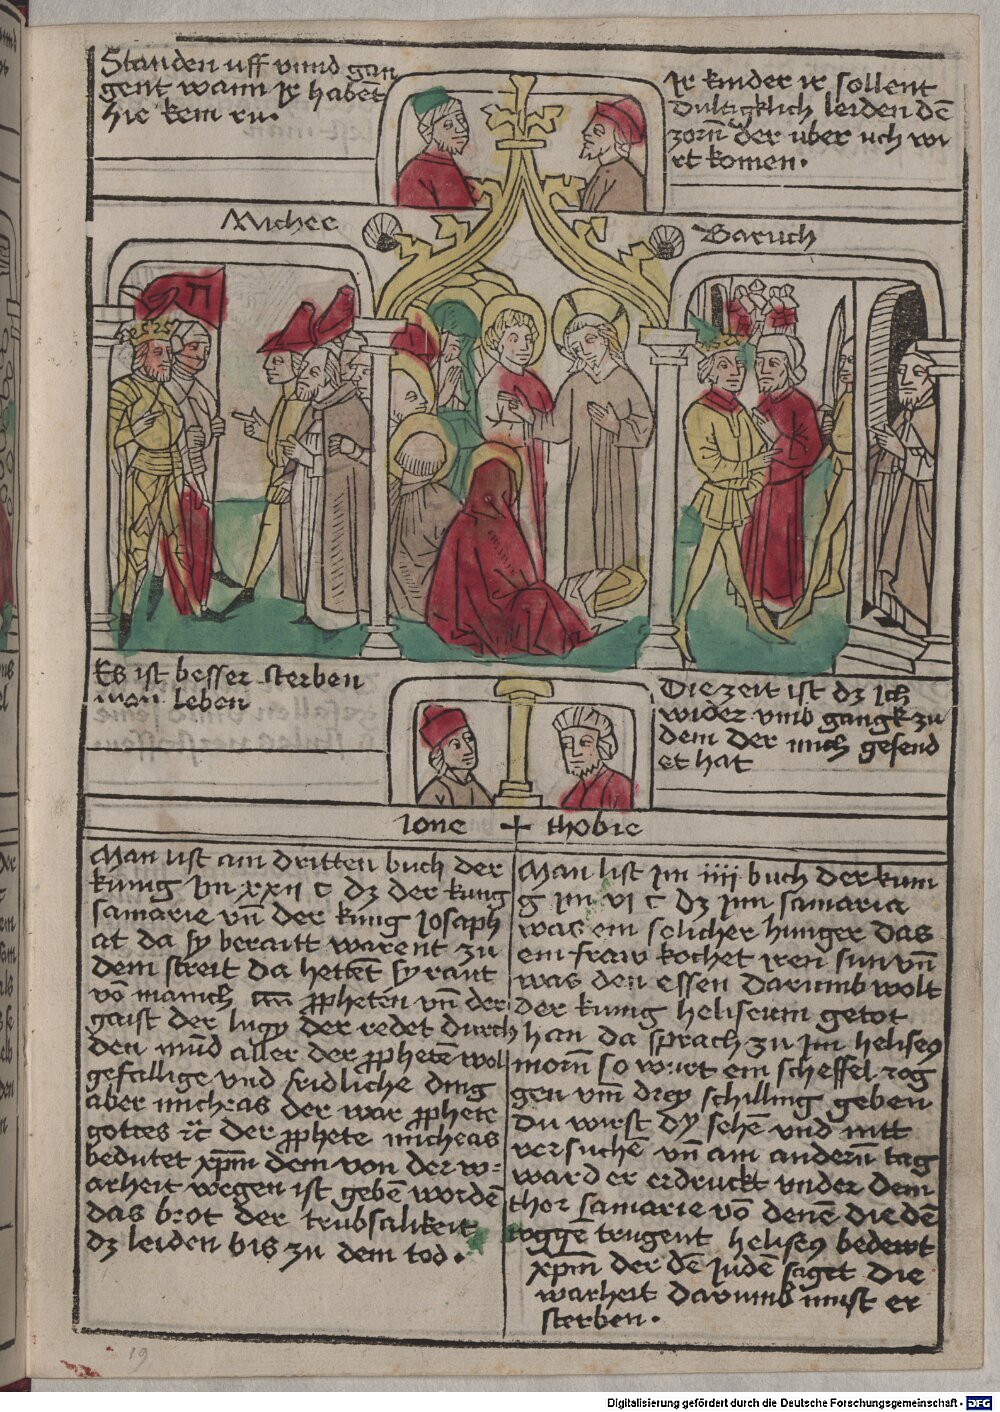 Standen uff vnnd gan
gent wann ir habet
hie kein ru.
Ir kinder ir sollent
dultigklich leiden dē
zorn der uber uch wi
rt komen.
Michee
Baruch
Es ist besser sterben
wan leben
Die zeit ist dz ich
wider vmb gangk zu
dem der mich gesend
et hat
Ione + thobie
Man list am dritten buch der
kunig im xxii c dz der kung
samarie vn̄ der kunig iosaph
at da sy beraitt warent zu
dem streit da hettēt sy
vō manich pphetēn vn̄ der
gaist der lugy der redet durch
den mūd aller der pphetē wol
gefallige vnd fridliche ding
aber micheas der war pphete
gottes ꝛc der pphete micheas
bedutet xp̄m dem von der w-
arheit wegen ist gebē wordē
das brot der trubsalikeit
dz leiden bis zu dem tod.
Man list im iiii buch der kuni
g im vi c dz inn samaria
was ein solicher hunger das
ein fraw kochet iren sun vn̄
was den essen darumb wolt
der kunig heliseum getot
han da sprach zu im heliseꝰ
morn̄ so wirt ein scheffel rog
gen vm̄ drey schilling geben
du wirst dy sehē vnd nitt
versuchē vn̄ am andern̄ tag
ward er erdruckt vnder dem
thor samarie vō denē die dē
roggē trugent heliseꝰ bedeut
xp̄m der dē iudē saget die
warheit darumb must er
sterben.
19
Digitalisierung gefördert durch die Deutsche Forschungsgemeinschaft - DFG